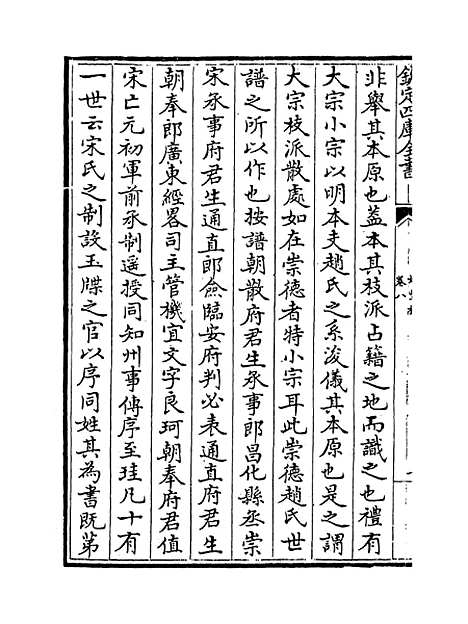 欽定四庫全書
卷八
非舉其本原也葢本其枝派占籍之地而識之也禮有
大宗小宗以明本夫趙氏之系浚儀其本原也是之謂
大宗枝派散處如在崇德者特小宗耳此崇德趙氏世
譜之所以作也按譜朝散府君生承事郎昌化縣丞崇
宋承事府君生通直郎僉臨安府判必表通直府君生
朝奉郎廣東經畧司主管機宜文字良珂朝奉府君值
宋亡元初軍前承制遥授同知州事傳序至珪凡十有
一世云宋氏之制設玉牒之官以序同姓其為書既第